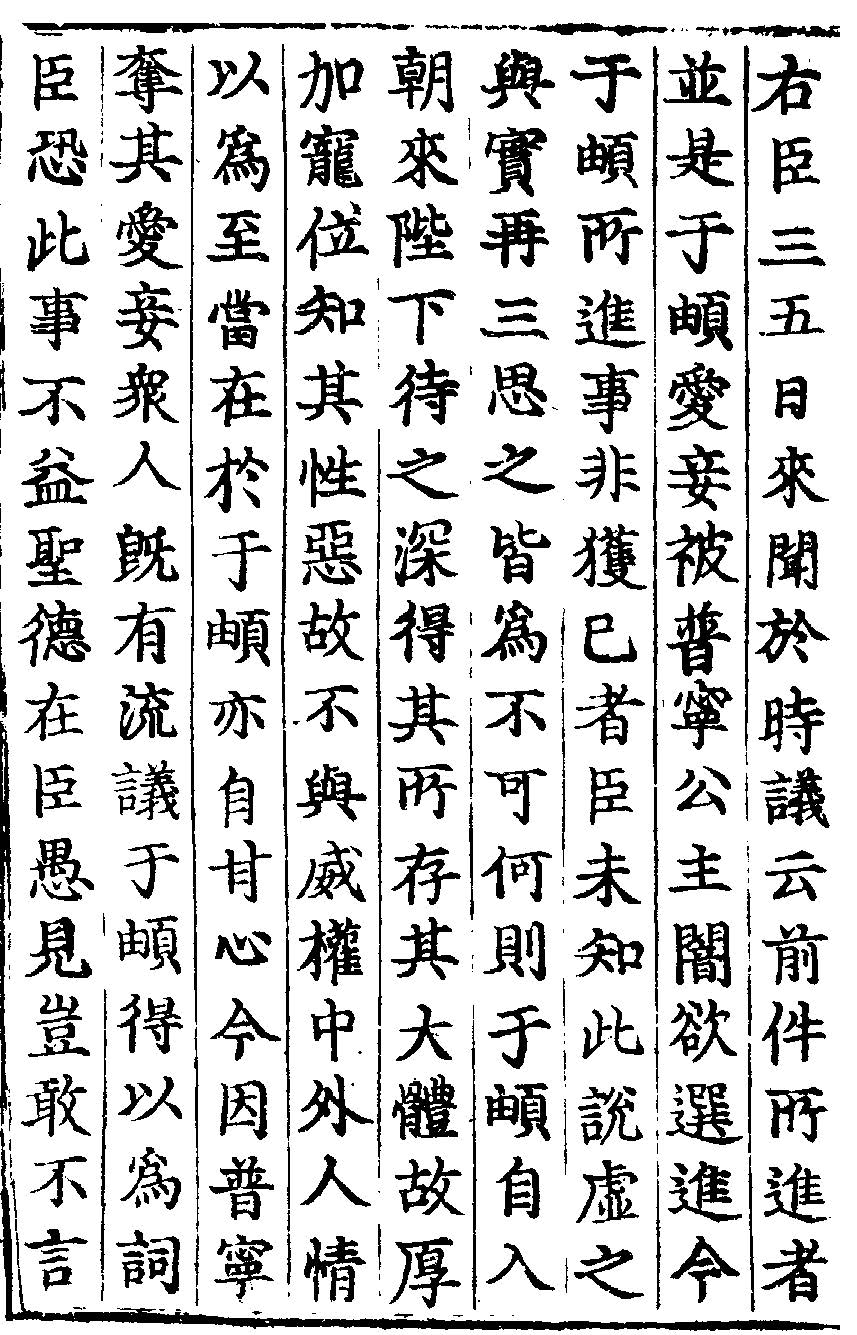 右臣三五日來聞於時議云前件所進者
並是于頔愛妾被普寧公主闇欲選進今
于頔所進事非獲已者臣未知此說虛之
與實再三思之皆為不可何則于頔自入
朝來陛下待之深得其所存其大體故厚
加寵位知其性惡故不與威權中外人情
以為至當在於于頔亦自甘心今因普寧
奪其愛妾衆人既有流議于頔得以為詞
臣恐此事不益聖德在臣愚見豈敢不言